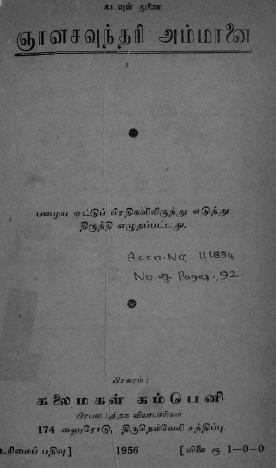 கடவுள் துணை
ஞானசவுந்தரி அம்மானை
பழைய ஏட்டுப் பிரதிகளிலிருந்து எடுத்து
திருத்தி எழுதப்பட்டது.
Accn. No 111894
No of Pages. 92
பிரசுரம் :
கலைமகள் கம்பெனி
பிரபல புத்தக வியாபாரிகள்
174 ஹைரோடு, திருநெல்வேலி சந்திப்பு.
உரிமைப் பதிவு] 1956 [விலை ரூ 1-0-0